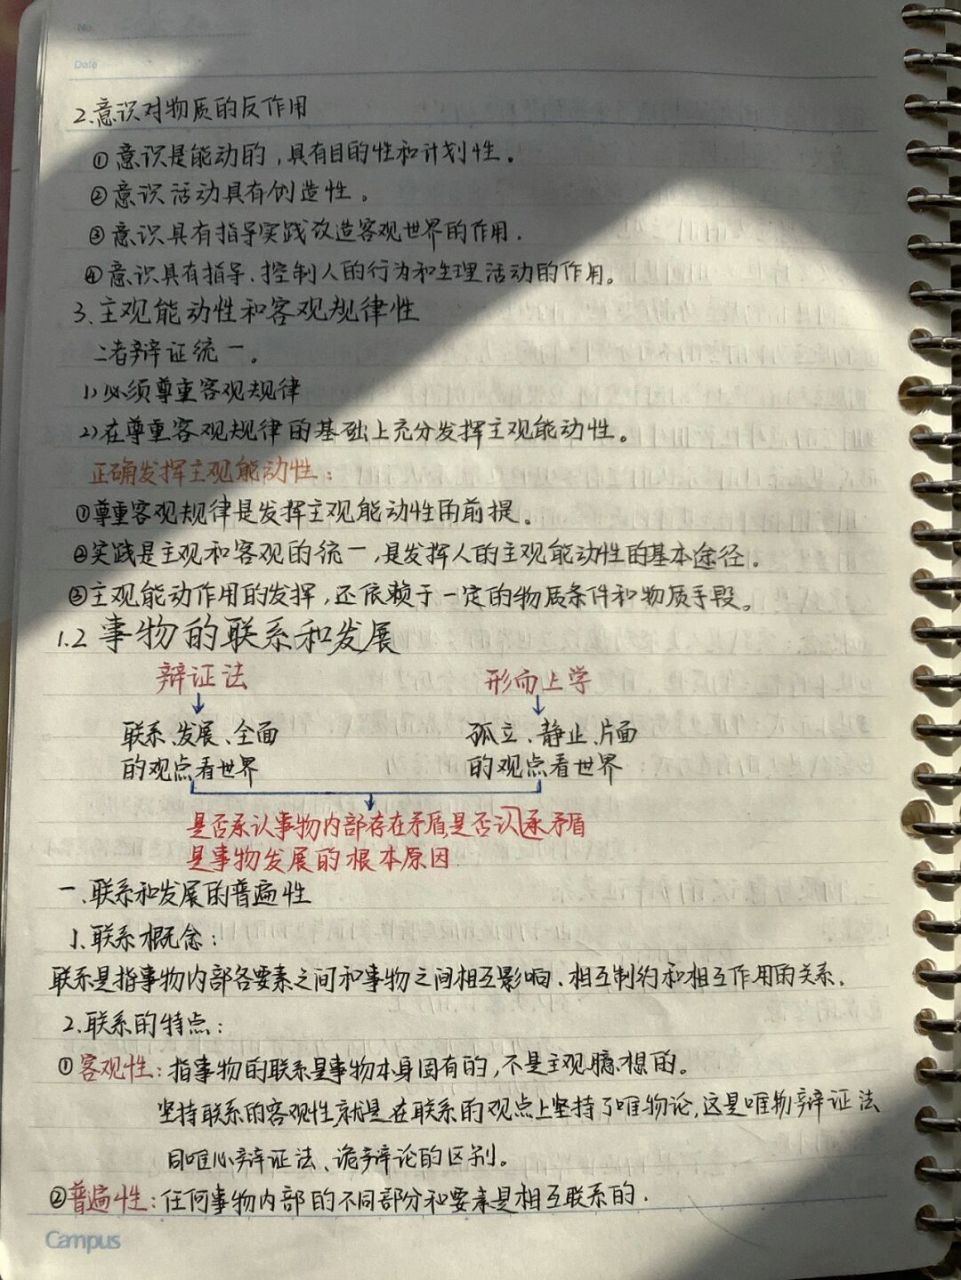 No.
Date
2.意识对物质的反作用
①意识是能动的,具有目的性和计划性。
②意识活动具有创造性。
③意识具有指导实践改造客观世界的作用.
④意识具有指导、控制人的行为和生理活动的作用。
3.主观能动性和客观规律性
二者辩证统一。
1)必须尊重客观规律
2)在尊重客观规律的基础上充分发挥主观能动性。
正确发挥主观能动性:
①尊重客观规律是发挥主观能动性的前提。
②实践是主观和客观的统一,是发挥人的主观能动性的基本途径.
③主观能动作用的发挥,还依赖于一定的物质条件和物质手段。
1.2事物的联系和发展
辩证法 形而上学
联系、发展、全面 孤立、静止、片面
的观点看世界 的观点看世界
是否承认事物内部存在矛盾,是否认承矛盾
是事物发展的根本原因
一.联系和发展的普遍性
1.联系概念:
联系是指事物内部各要素之间和事物之间相互影响、相互制约和相互作用的关系.
2.联系的特点:
①客观性:指事物的联系是事物本身固有的,不是主观臆想的。
坚持联系的客观性就是在联系的观点上坚持了唯物论,这是唯物辩证法
同唯心辩证法、诡辩论的区别。
②普遍性:任何事物内部的不同部分和要素是相互联系的.
Campus